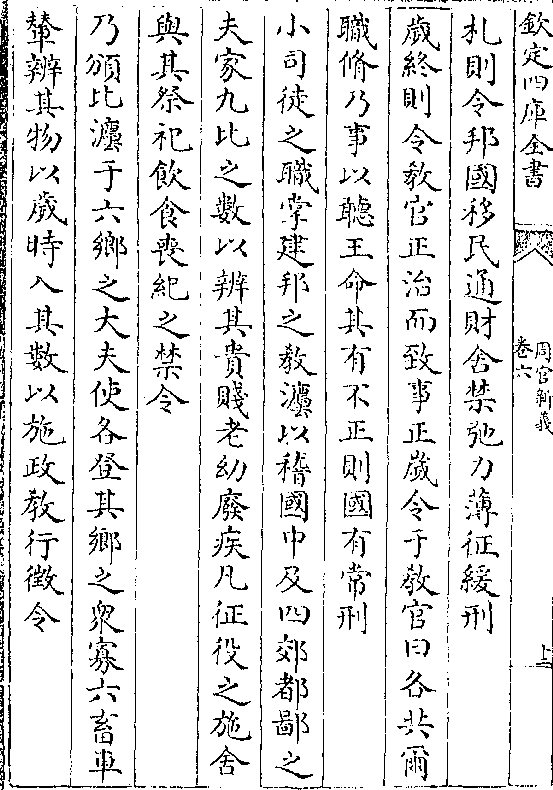 欽定四庫全書
周官新義
卷六
上
札則令邦國移民通財舍禁弛力薄征緩刑
歲終則令教官正治而致事正歲令于教官曰各共爾
職脩乃事以聽王命其有不正則國有常刑
小司徒之職掌建邦之教灋以稽國中及四郊都鄙之
夫家九比之數以辨其貴賤老幼廢疾凡征役之施舍
與其祭祀飲食喪紀之禁令
乃頒比灋于六鄉之大夫使各登其鄉之衆寡六畜車
輦辨其物以歲時入其數以施政教行徵令